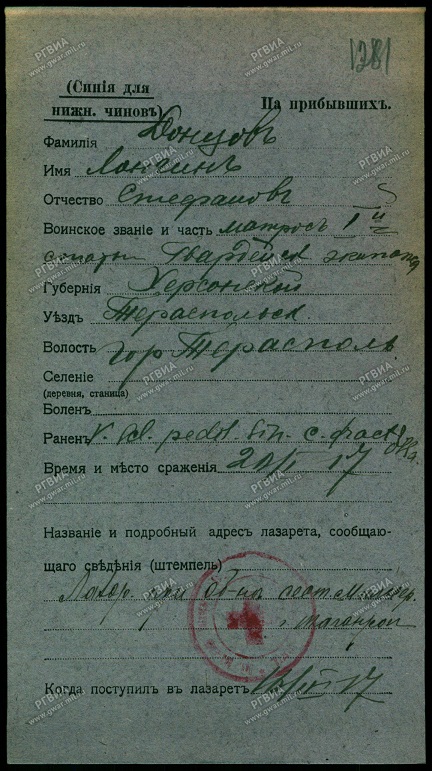 1281
(Синія для
нижн. чиновъ)
На прибывшихъ.
Фамилія Донцовъ
Имя Лонгинъ
Отчество Стефановъ
Воинское званіе и часть матросъ I й
Гвардейск экипажа
Губернія Херсонской
Уѣздъ Тераспольск.
Волость гор Терасполь
Селеніе
(деревня, станица)
Боленъ
Раненъ V. scl. pedit. sin. c. fract
Время и мѣсто сраженія 20/I 17
Названіе и подробный адресъ лазарета, сообщаю-
щаго свѣдѣнія (штемпель)
Лазар. при об-нѣ сест. милосер.
г. Таганрог
Когда поступилъ въ лазаретъ 17
РГВИА
www.gwar.mil.ru